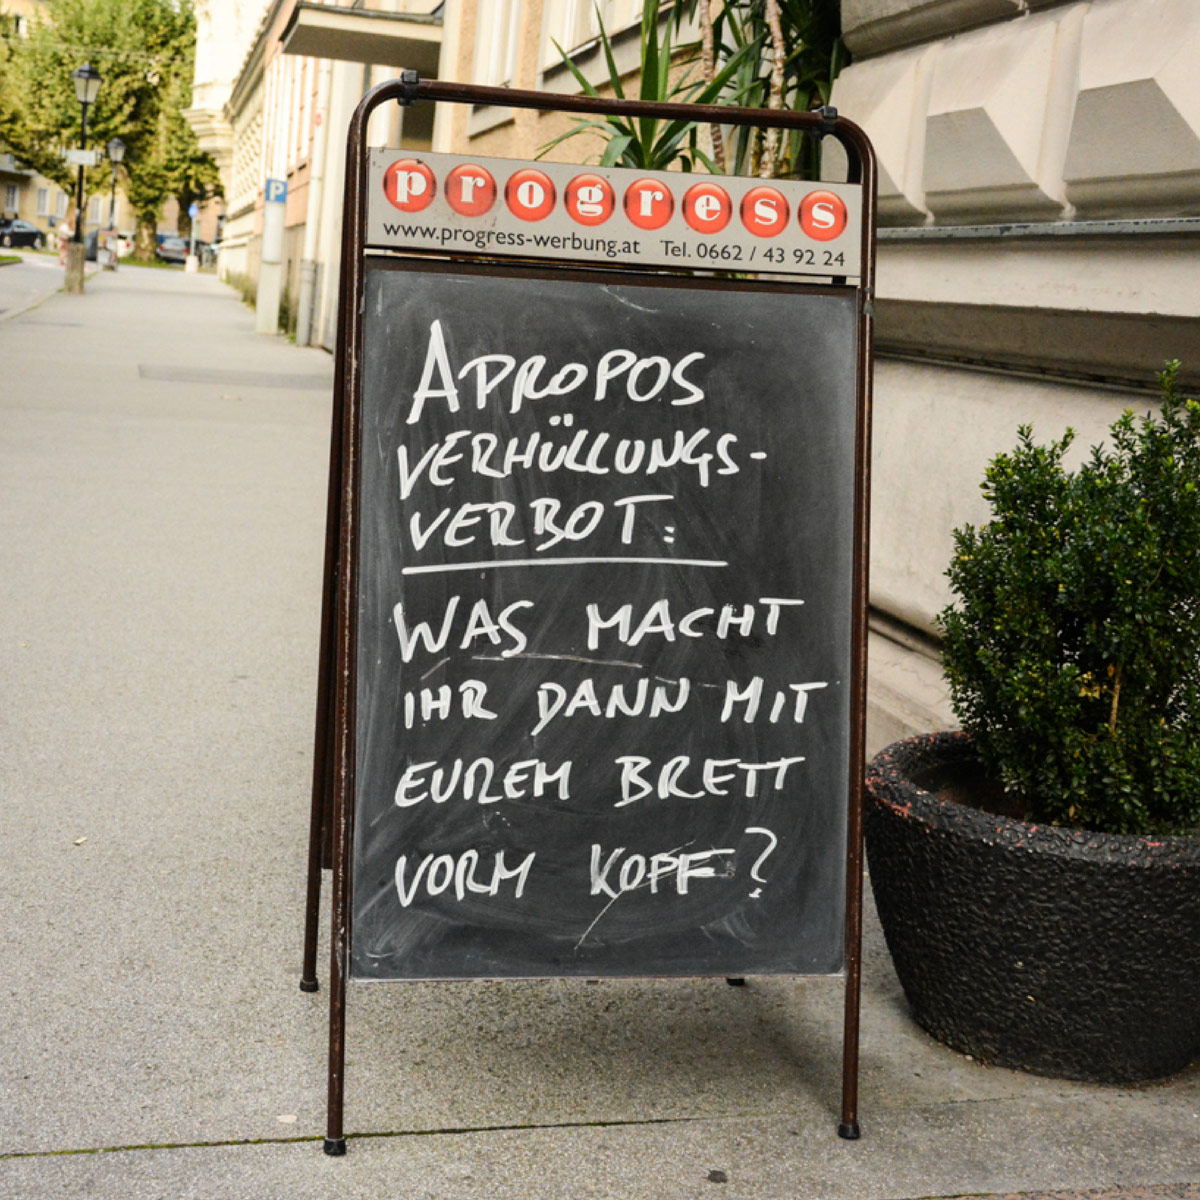 progress
www.progress-werbung.at Tel. 0662 / 43 92 24
APROPOS
VERHÜLLUNGS-
VERBOT:
WAS MACHT
IHR DANN MIT
EUREM BRETT
VORM KOPF?
P